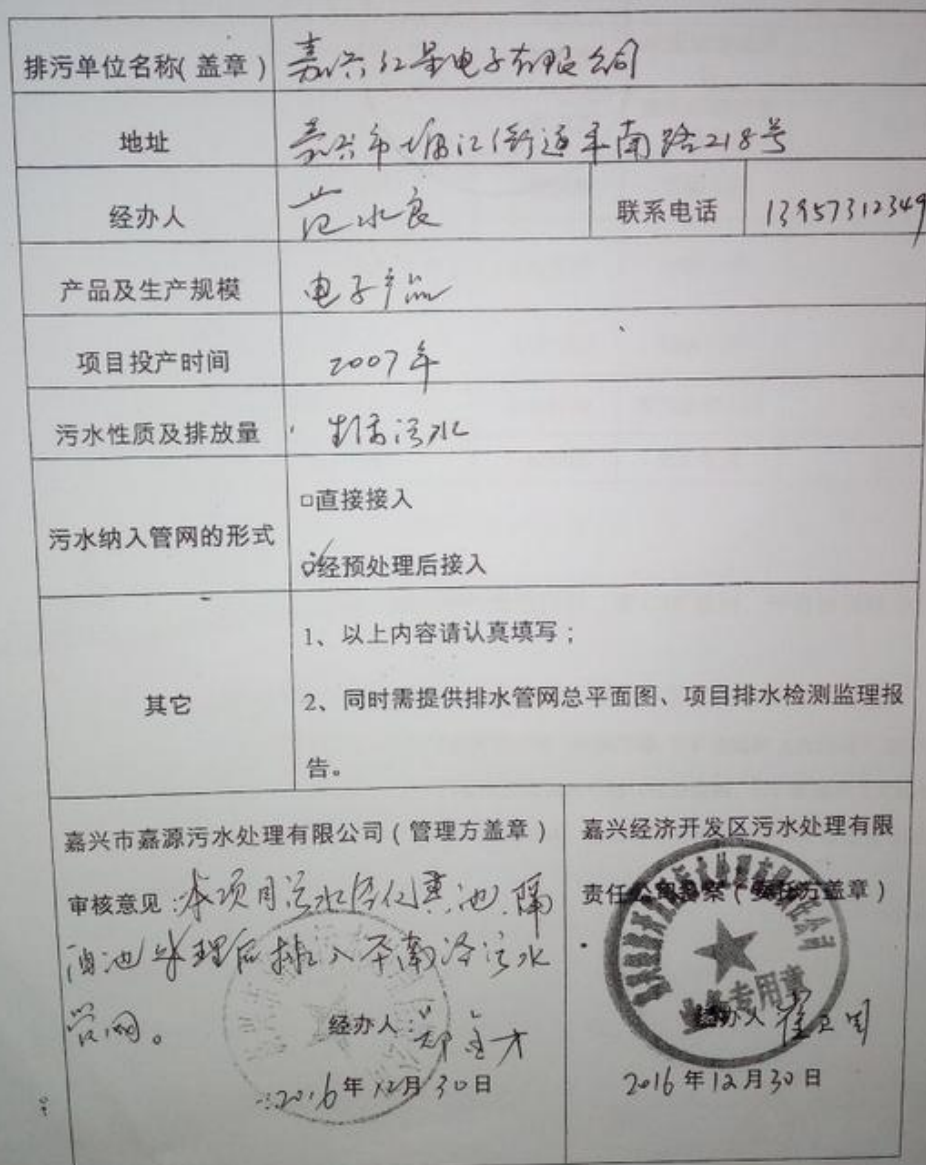 排污单位名称(盖章) 嘉兴红星电子有限公司
地址 嘉兴市塘汇街道平南路218号
经办人 范水良 联系电话 13957312349
产品及生产规模 电子产品
项目投产时间 2007年
污水性质及排放量 生活污水
□直接接入
污水纳入管网的形式
□经预处理后接入
1、以上内容请认真填写;
其它 2、同时需提供排水管网总平面图、项目排水检测监理报
告。
嘉兴市嘉源污水处理有限公司(管理方盖章)
审核意见:本项目污水经化粪池、隔
油池处理后排入平南路污水
管网。
经办人:郑金才
2016年12月30日
嘉兴经济开发区污水处理有限
责任公司备案(委托方盖章)
业务专用章
经办人 崔卫国
2016年12月30日